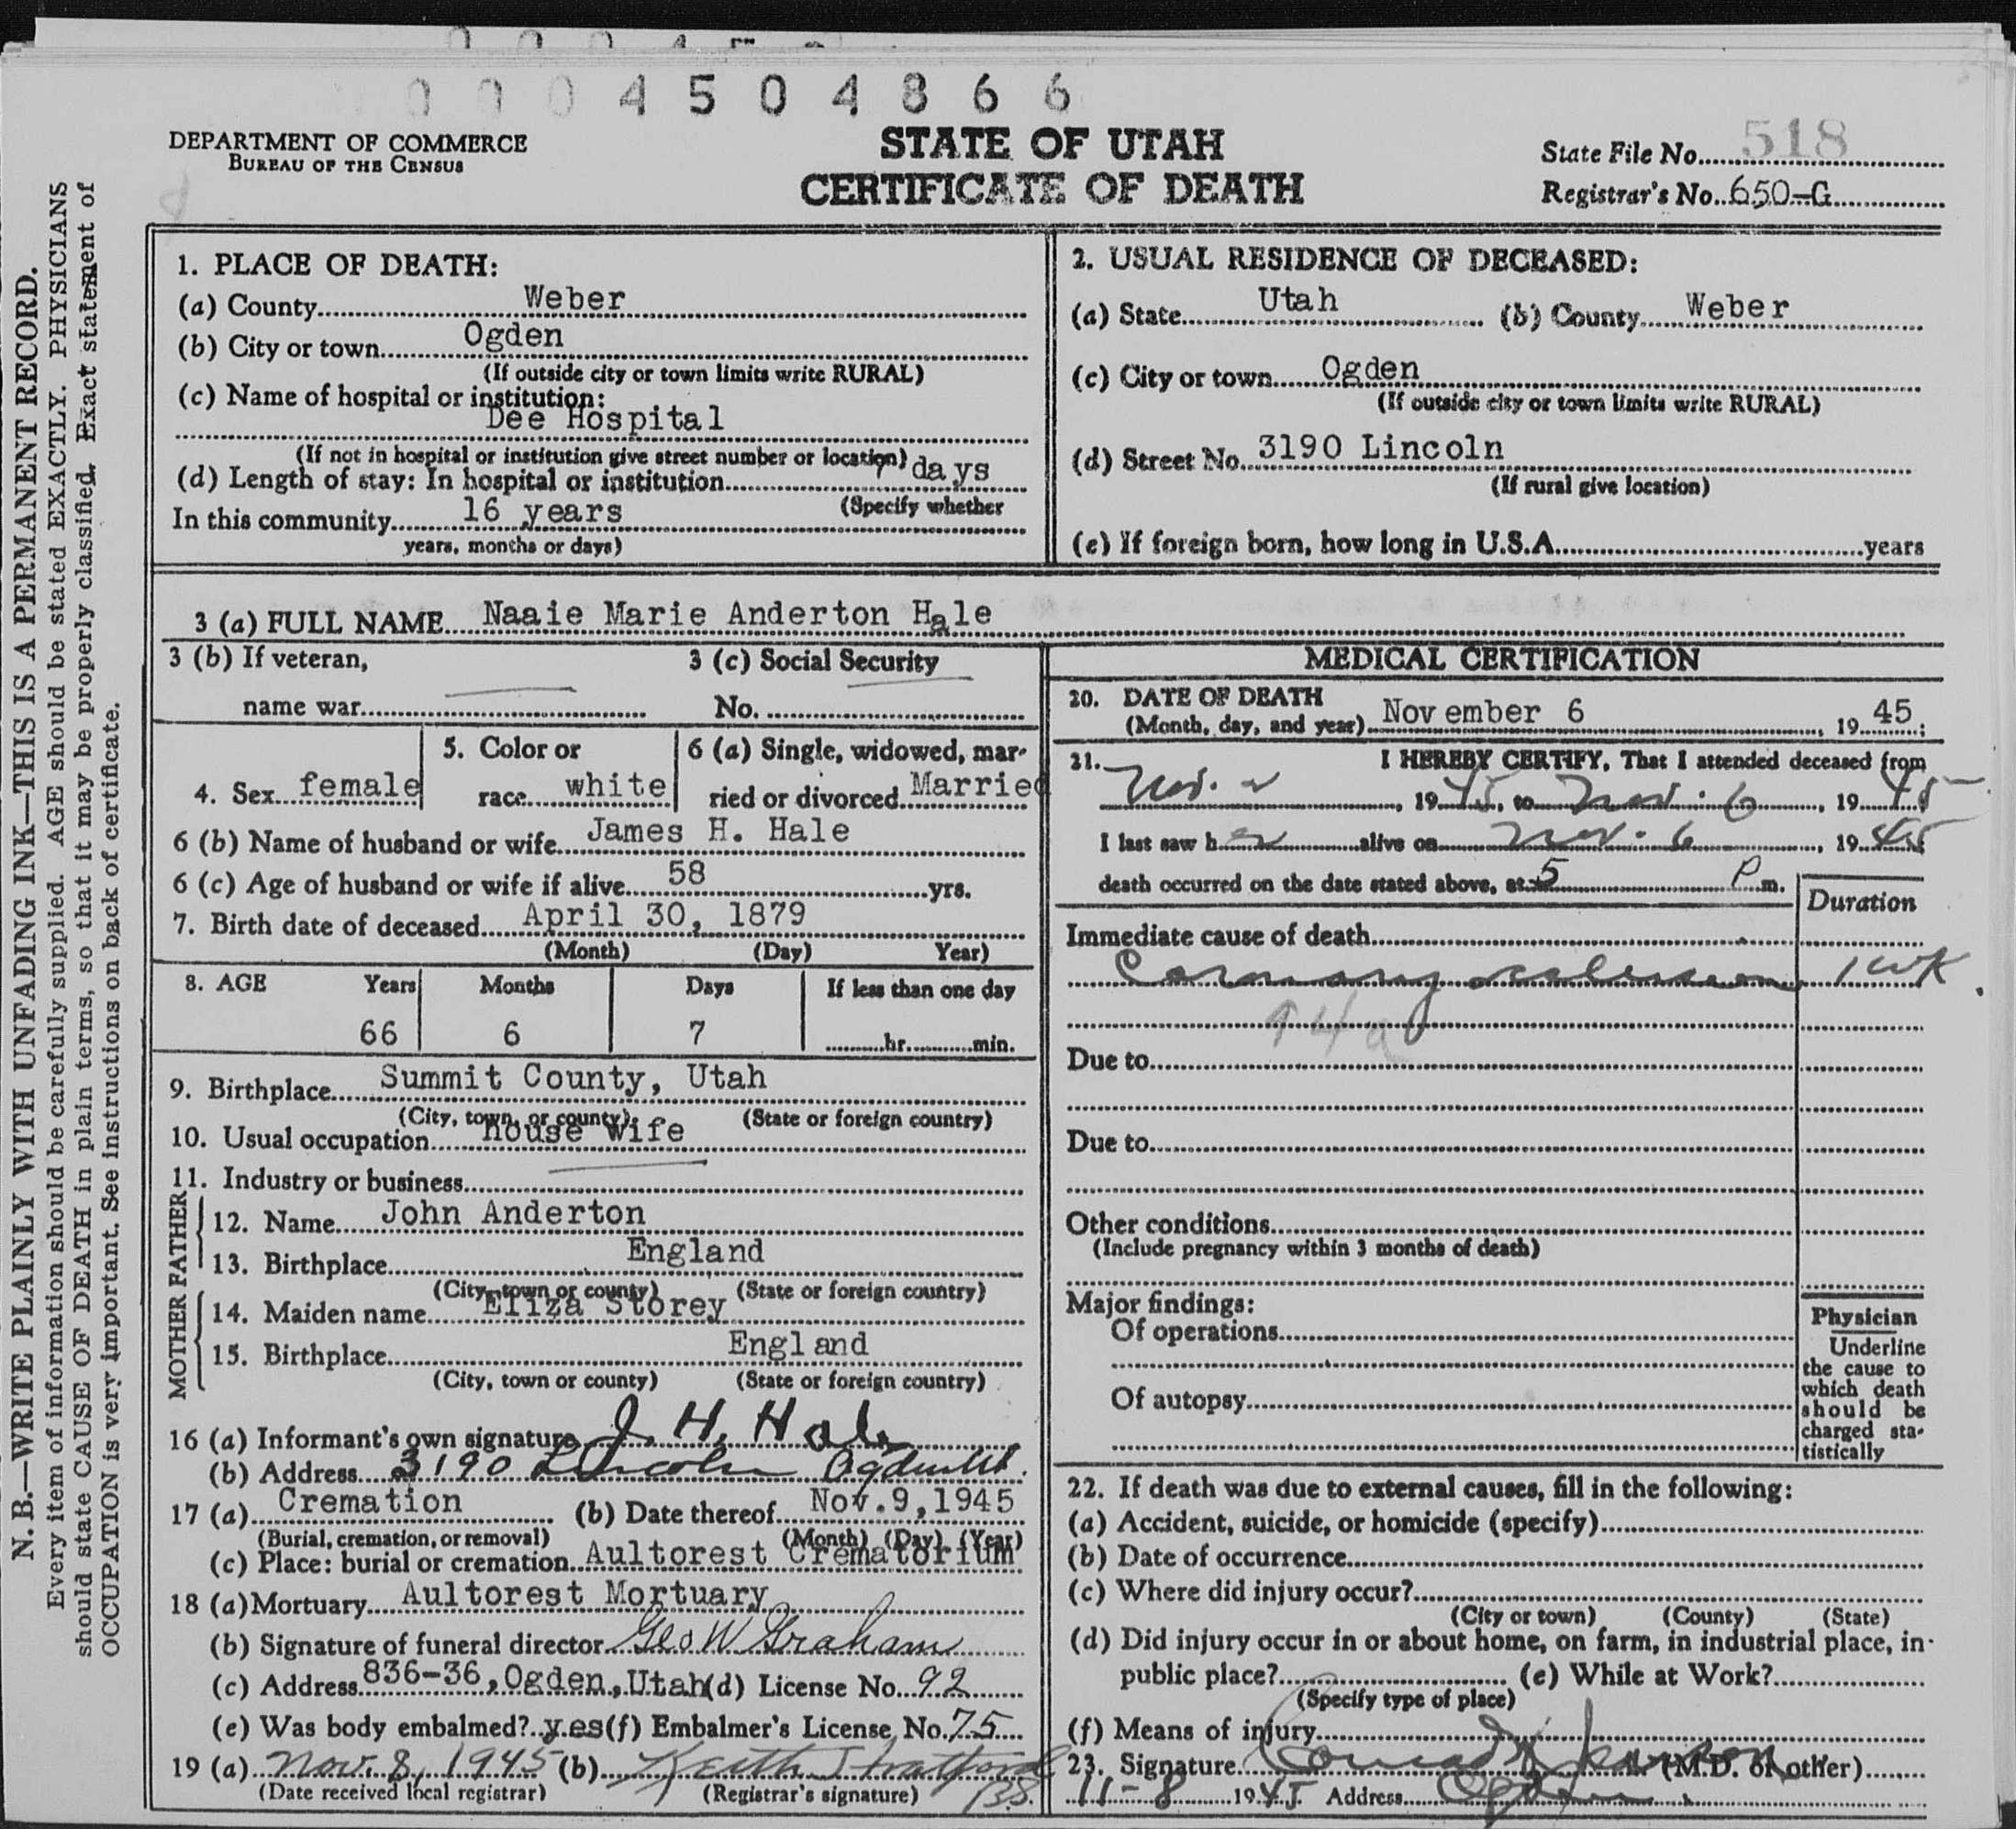 0004504866
DEPARTMENT OF COMMERCE
BUREAU OF THE CENSUS
STATE OF UTAH
CERTIFICATE OF DEATH
State File No. 518
Registrar's No. 650-G
N. B.—WRITE PLAINLY WITH UNFADING INK—THIS IS A PERMANENT RECORD.
Every item of information should be carefully supplied. AGE should be stated EXACTLY. PHYSICIANS
should state CAUSE OF DEATH in plain terms, so that it may be properly classified. Exact statement of
OCCUPATION is very important. See instructions on back of certificate.
1. PLACE OF DEATH:
(a) County Weber
(b) City or town Ogden
(If outside city or town limits write RURAL)
(c) Name of hospital or institution:
Dee Hospital
(If not in hospital or institution give street number or location)
(d) Length of stay: In hospital or institution days
In this community 16 years (Specify whether
years, months or days)
2. USUAL RESIDENCE OF DECEASED:
(a) State Utah (b) County Weber
(c) City or town Ogden
(If outside city or town limits write RURAL)
(d) Street No. 3190 Lincoln
(If rural give location)
(e) If foreign born, how long in U.S.A. years
3 (a) FULL NAME Naaie Marie Anderton Hale
3 (b) If veteran, 3 (c) Social Security
name war No.
4. Sex female
5. Color or
race white
6 (a) Single, widowed, mar-
ried or divorced Married
6 (b) Name of husband or wife James H. Hale
6 (c) Age of husband or wife if alive 58 yrs.
7. Birth date of deceased April 30, 1879
(Month) (Day) Year)
8. AGE Years Months Days If less than one day
66 6 7 hr. min.
9. Birthplace Summit County, Utah
(City, town, or county) (State or foreign country)
10. Usual occupation house wife
11. Industry or business
FATHER
12. Name John Anderton
13. Birthplace England
(City, town or county) (State or foreign country)
MOTHER
14. Maiden name Eliza Storey
15. Birthplace England
(City, town or county) (State or foreign country)
16 (a) Informant's own signature J. H. Hale
(b) Address 3190 Lincoln Ogden Ut.
17 (a) Cremation (b) Date thereof Nov.9,1945
(Burial, cremation, or removal) (Month) (Day) (Year)
(c) Place: burial or cremation Aultorest Crematorium
18 (a) Mortuary Aultorest Mortuary
(b) Signature of funeral director Geo W Graham
(c) Address 836-36,Ogden,Utah (d) License No. 92
(e) Was body embalmed? yes (f) Embalmer's License No. 75
19 (a) Nov. 8, 1945 (b) Keith Stratford
(Date received local registrar) (Registrar's signature)
MEDICAL CERTIFICATION
20. DATE OF DEATH
(Month, day, and year) November 6, 1945;
21. I HEREBY CERTIFY, That I attended deceased from
Nov. 2, 1945, to Nov. 6, 1945
I last saw her alive on Nov. 6, 1945
death occurred on the date stated above, at 5 P m.
Duration
Immediate cause of death
Coronary occlusion 1 wk
94a
Due to
Due to
Other conditions
(Include pregnancy within 3 months of death)
Major findings:
Of operations
Of autopsy
Physician
Underline
the cause to
which death
should be
charged sta-
tistically
22. If death was due to external causes, fill in the following:
(a) Accident, suicide, or homicide (specify)
(b) Date of occurrence
(c) Where did injury occur?
(City or town) (County) (State)
(d) Did injury occur in or about home, on farm, in industrial place, in
public place? (e) While at Work?
(Specify type of place)
(f) Means of injury
23. Signature Conrad H Jenson (M.D. or other)
11-8 1945 Address Ogden